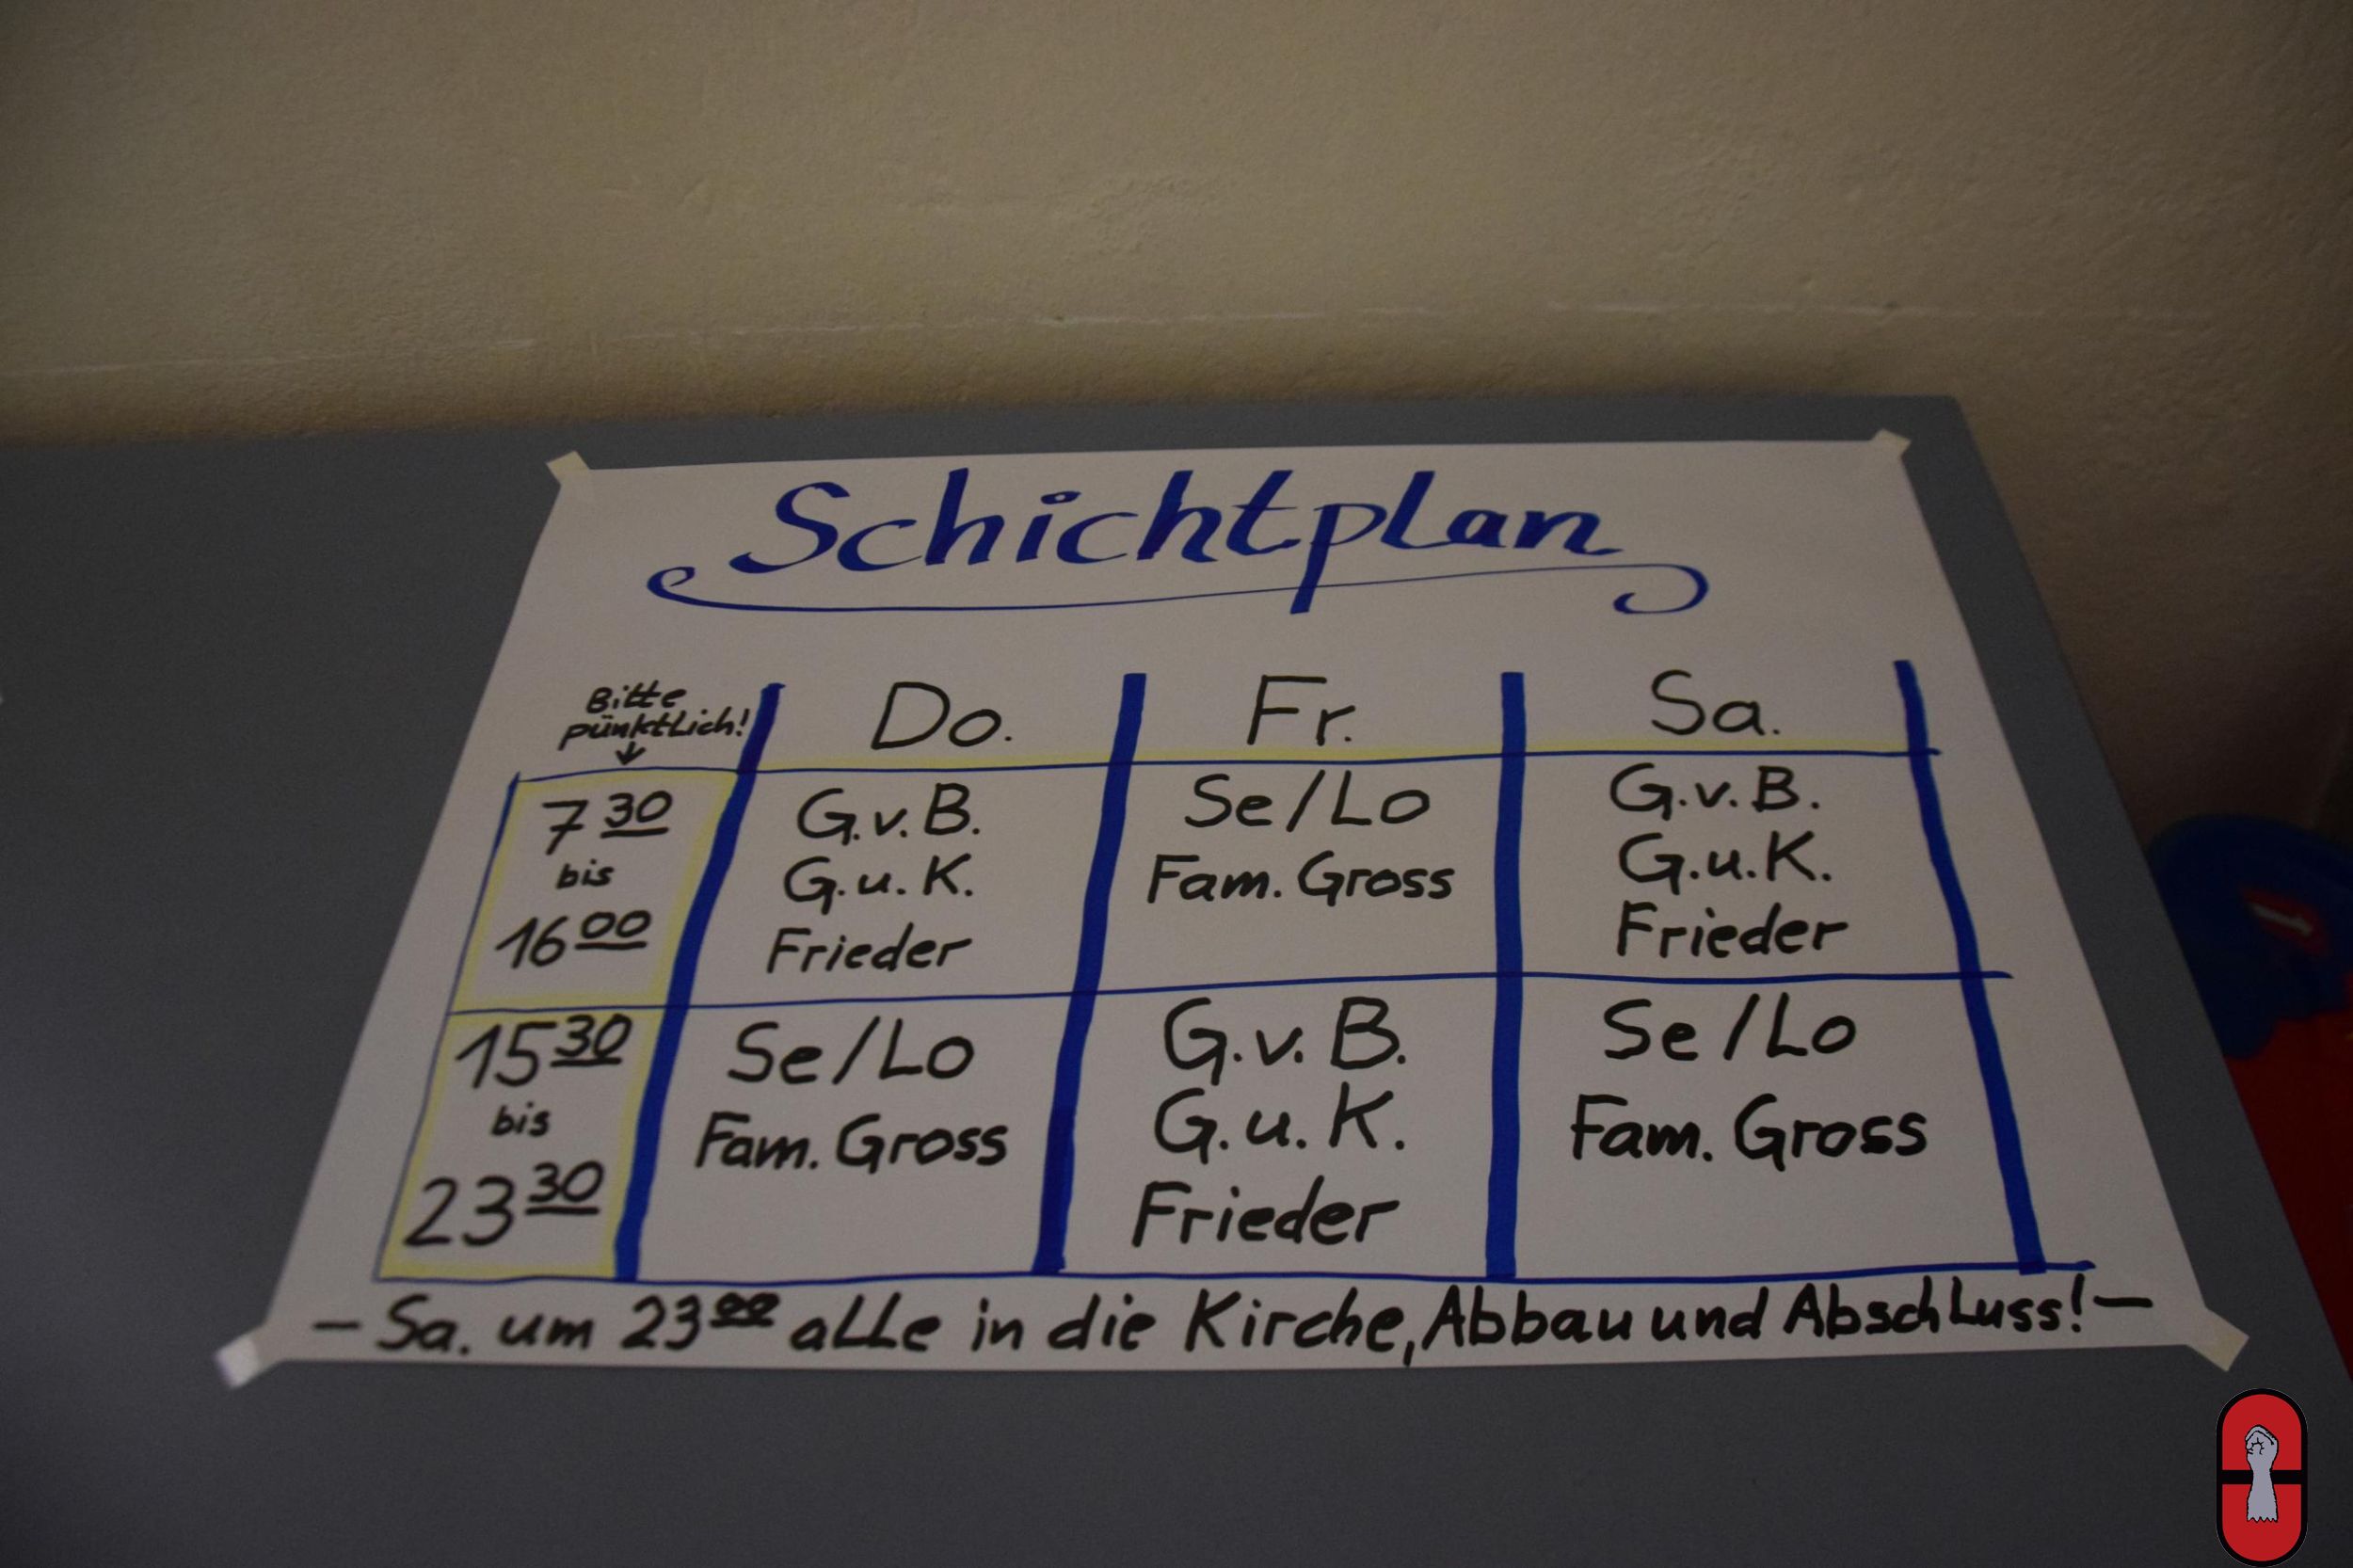 Schichtplan
Bitte
pünktlich!
Do. Fr. Sa.
7 30
bis
16 00
G.v.B.
G.u.K.
Frieder
Se/Lo
Fam. Gross
G.v.B.
G.u.K.
Frieder
15 30
bis
23 30
Se/Lo
Fam. Gross
G.v.B.
G.u.K.
Frieder
Se/Lo
Fam. Gross
– Sa. um 23 00 alle in die Kirche, Abbau und Abschluss! –